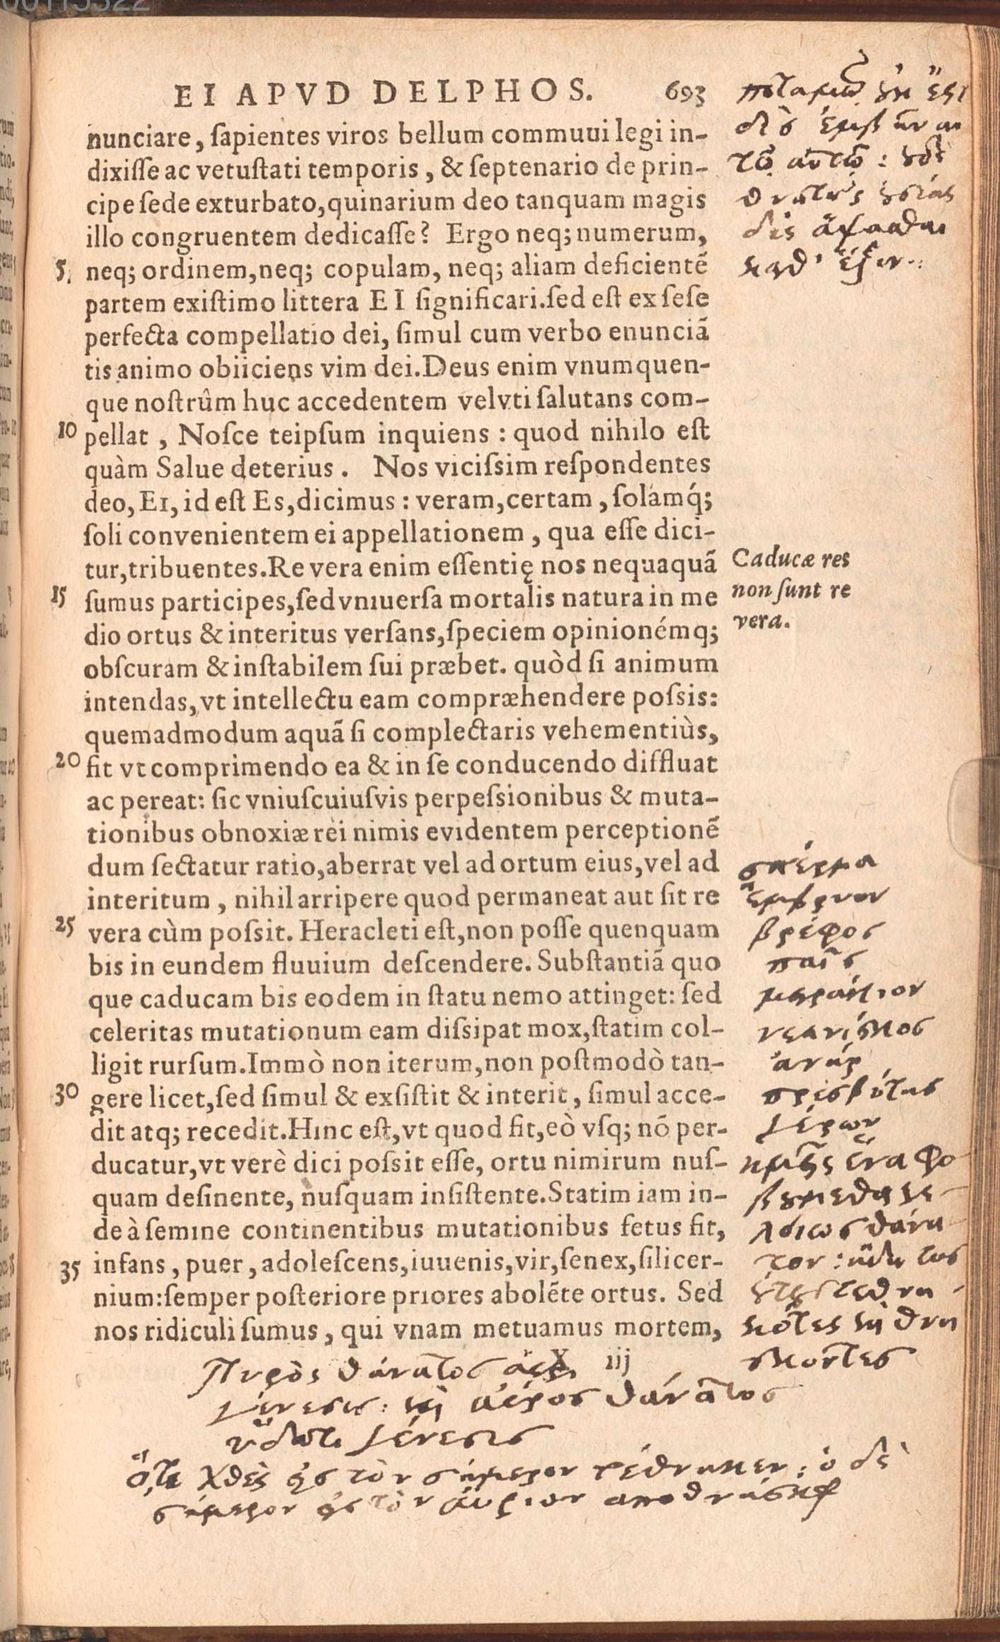 EI APVD DELPHOS. 693
nunciare, ſapientes viros bellum commuui legi in-
dixiſſe ac vetuſtati temporis, & ſeptenario de prin-
cipe ſede exturbato, quinarium deo tanquam magis
illo congruentem dedicaſſe? Ergo neq; numerum,
5 neq; ordinem, neq; copulam, neq; aliam deficientẽ
partem exiſtimo littera EI ſignificari. ſed eſt ex ſeſe
perfecta compellatio dei, ſimul cum verbo enunciã
tis animo obiiciens vim dei. Deus enim vnumquen-
que noſtrûm huc accedentem velvti ſalutans com-
10 pellat, Noſce teipſum inquiens: quod nihilo eſt
quàm Salue deterius. Nos viciſsim reſpondentes
deo, EI, id eſt Es, dicimus: veram, certam, ſolámq́;
ſoli convenientem ei appellationem, qua eſſe dici-
tur, tribuentes. Re vera enim eſſentię nos nequaquã
15 ſumus participes, ſed vniuerſa mortalis natura in me
dio ortus & interitus verſans, ſpeciem opinionémq;
obſcuram & inſtabilem ſui præbet. quòd ſi animum
intendas, vt intellectu eam compræhendere poſsis:
quemadmodum aquã ſi complectaris vehementiùs,
20 fit vt comprimendo ea & in ſe conducendo diffluat
ac pereat: ſic vniuſcuiuſvis perpeſsionibus & muta-
tionibus obnoxiæ rei nimis evidentem perceptionẽ
dum ſectatur ratio, aberrat vel ad ortum eius, vel ad
interitum, nihil arripere quod permaneat aut ſit re
25 vera cùm poſsit. Heracleti eſt, non poſſe quenquam
bis in eundem fluvium deſcendere. Subſtantiã quo
que caducam bis eodem in ſtatu nemo attinget: ſed
celeritas mutationum eam diſsipat mox, ſtatim col-
ligit rurſum. Immò non iterum, non poſtmodò tan-
30 gere licet, ſed ſimul & exſiſtit & interit, ſimul acce-
dit atq; recedit. Hinc eſt, vt quod fit, eò vſq; nõ per-
ducatur, vt verè dici poſsit eſſe, ortu nimirum nuſ-
quam deſinente, nuſquam inſiſtente. Statim iam in-
de à ſemine continentibus mutationibus fetus fit,
35 infans, puer, adoleſcens, iuuenis, vir, ſenex, ſilicer-
nium: ſemper poſteriore priores abolẽte ortus. Sed
nos ridiculi ſumus, qui vnam metuamus mortem,
X iij
Caducæ res
non ſunt re
vera.
ποταμῷ οὐκ ἔστι
δὶς ἐμβῆναι
τῷ αὐτῷ: οὐδὲ
θνητῆς οὐσίας
δὶς ἅψασθαι
καθ' ἕξιν
σπέρμα
ἔμβρυον
βρέφος
παῖς
μειράκιον
νεανίσκος
ἀνήρ
πρεσβύτης
γέρων
ἡμεῖς ἕνα φο-
βούμεθα γε-
λοίως θάνα-
τον: ἤδη τοσ
ούτους τεθνη-
κότες καὶ θνή
σκοντες
Πυρὸς θάνατος ἀέρι
γένεσις: καὶ ἀέρος θάνατος
ὕδατι γένεσις
ὅτε χθὲς εἰς τὸν σήμερον τέθνηκεν: ὁ δὲ
σήμερον εἰς τὸν αὔριον ἀποθνήσκει